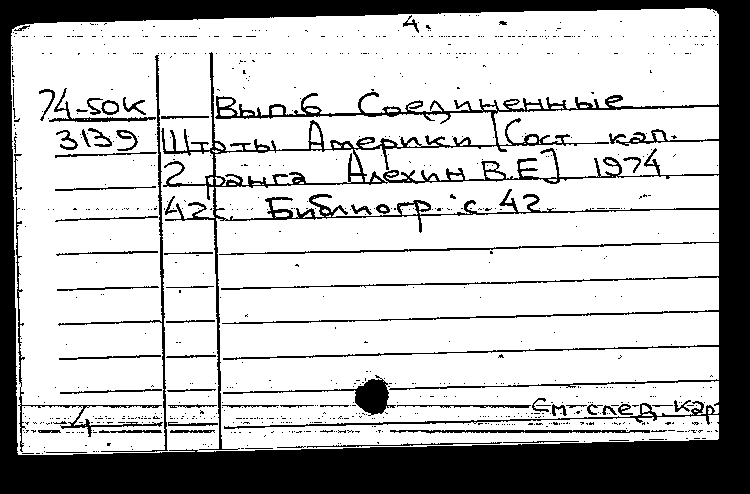 4.
74-50к Вып.6 Соединенные
3139 Штаты Америки [Сост. кап.
2 ранга Алехин В.Е]. 1974.
42с. Библиогр.: с. 42.
См. след. кар